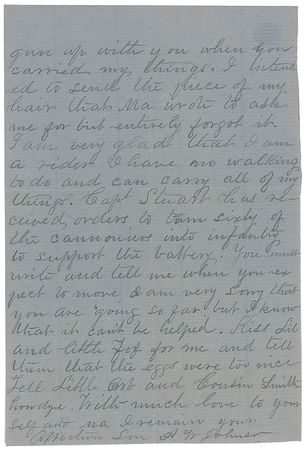 gun up with you when you
carried my things. I intend
ed to send the piece of my
hair that Ma wrote to ask
me for but entirely forgot it.
I am very glad that I am
a rider I have no walking
to do and can carry all of my
things. Capt Stuart has re
ceived orders to turn sixty of
the cannoniers into infantry
to support the battery. You must
write and tell me when you ex
pect to move I am very sorry that
you are going so far but I know
that it can't be helped. Kiss Lil
and little Fox for me and tell
them that the eggs were too nice
Tell Little Orb and Cousin Smith
howdye. With much love to your
self and ma I remain your
Affection Son A W Johnson